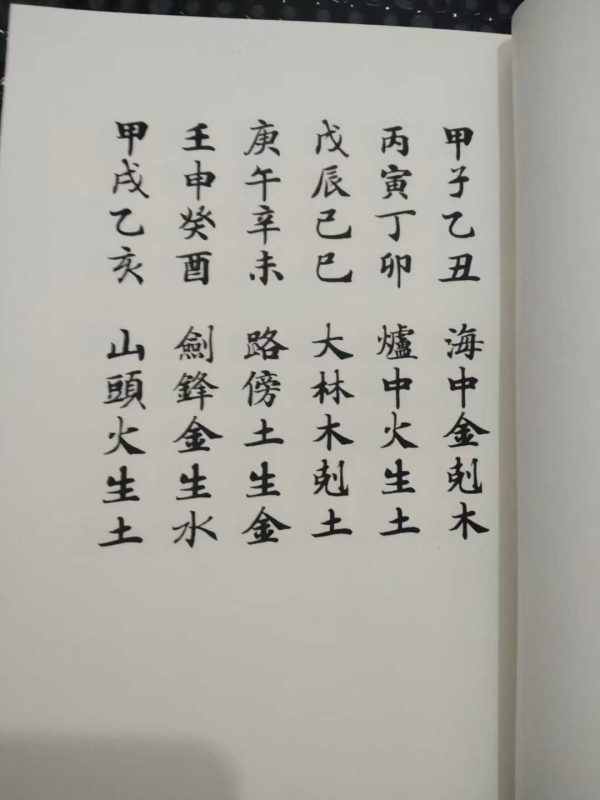 甲子乙丑 海中金剋木
丙寅丁卯 爐中火生土
戊辰己巳 大林木剋土
庚午辛未 路傍土生金
壬申癸酉 劍鋒金生水
甲戌乙亥 山頭火生土